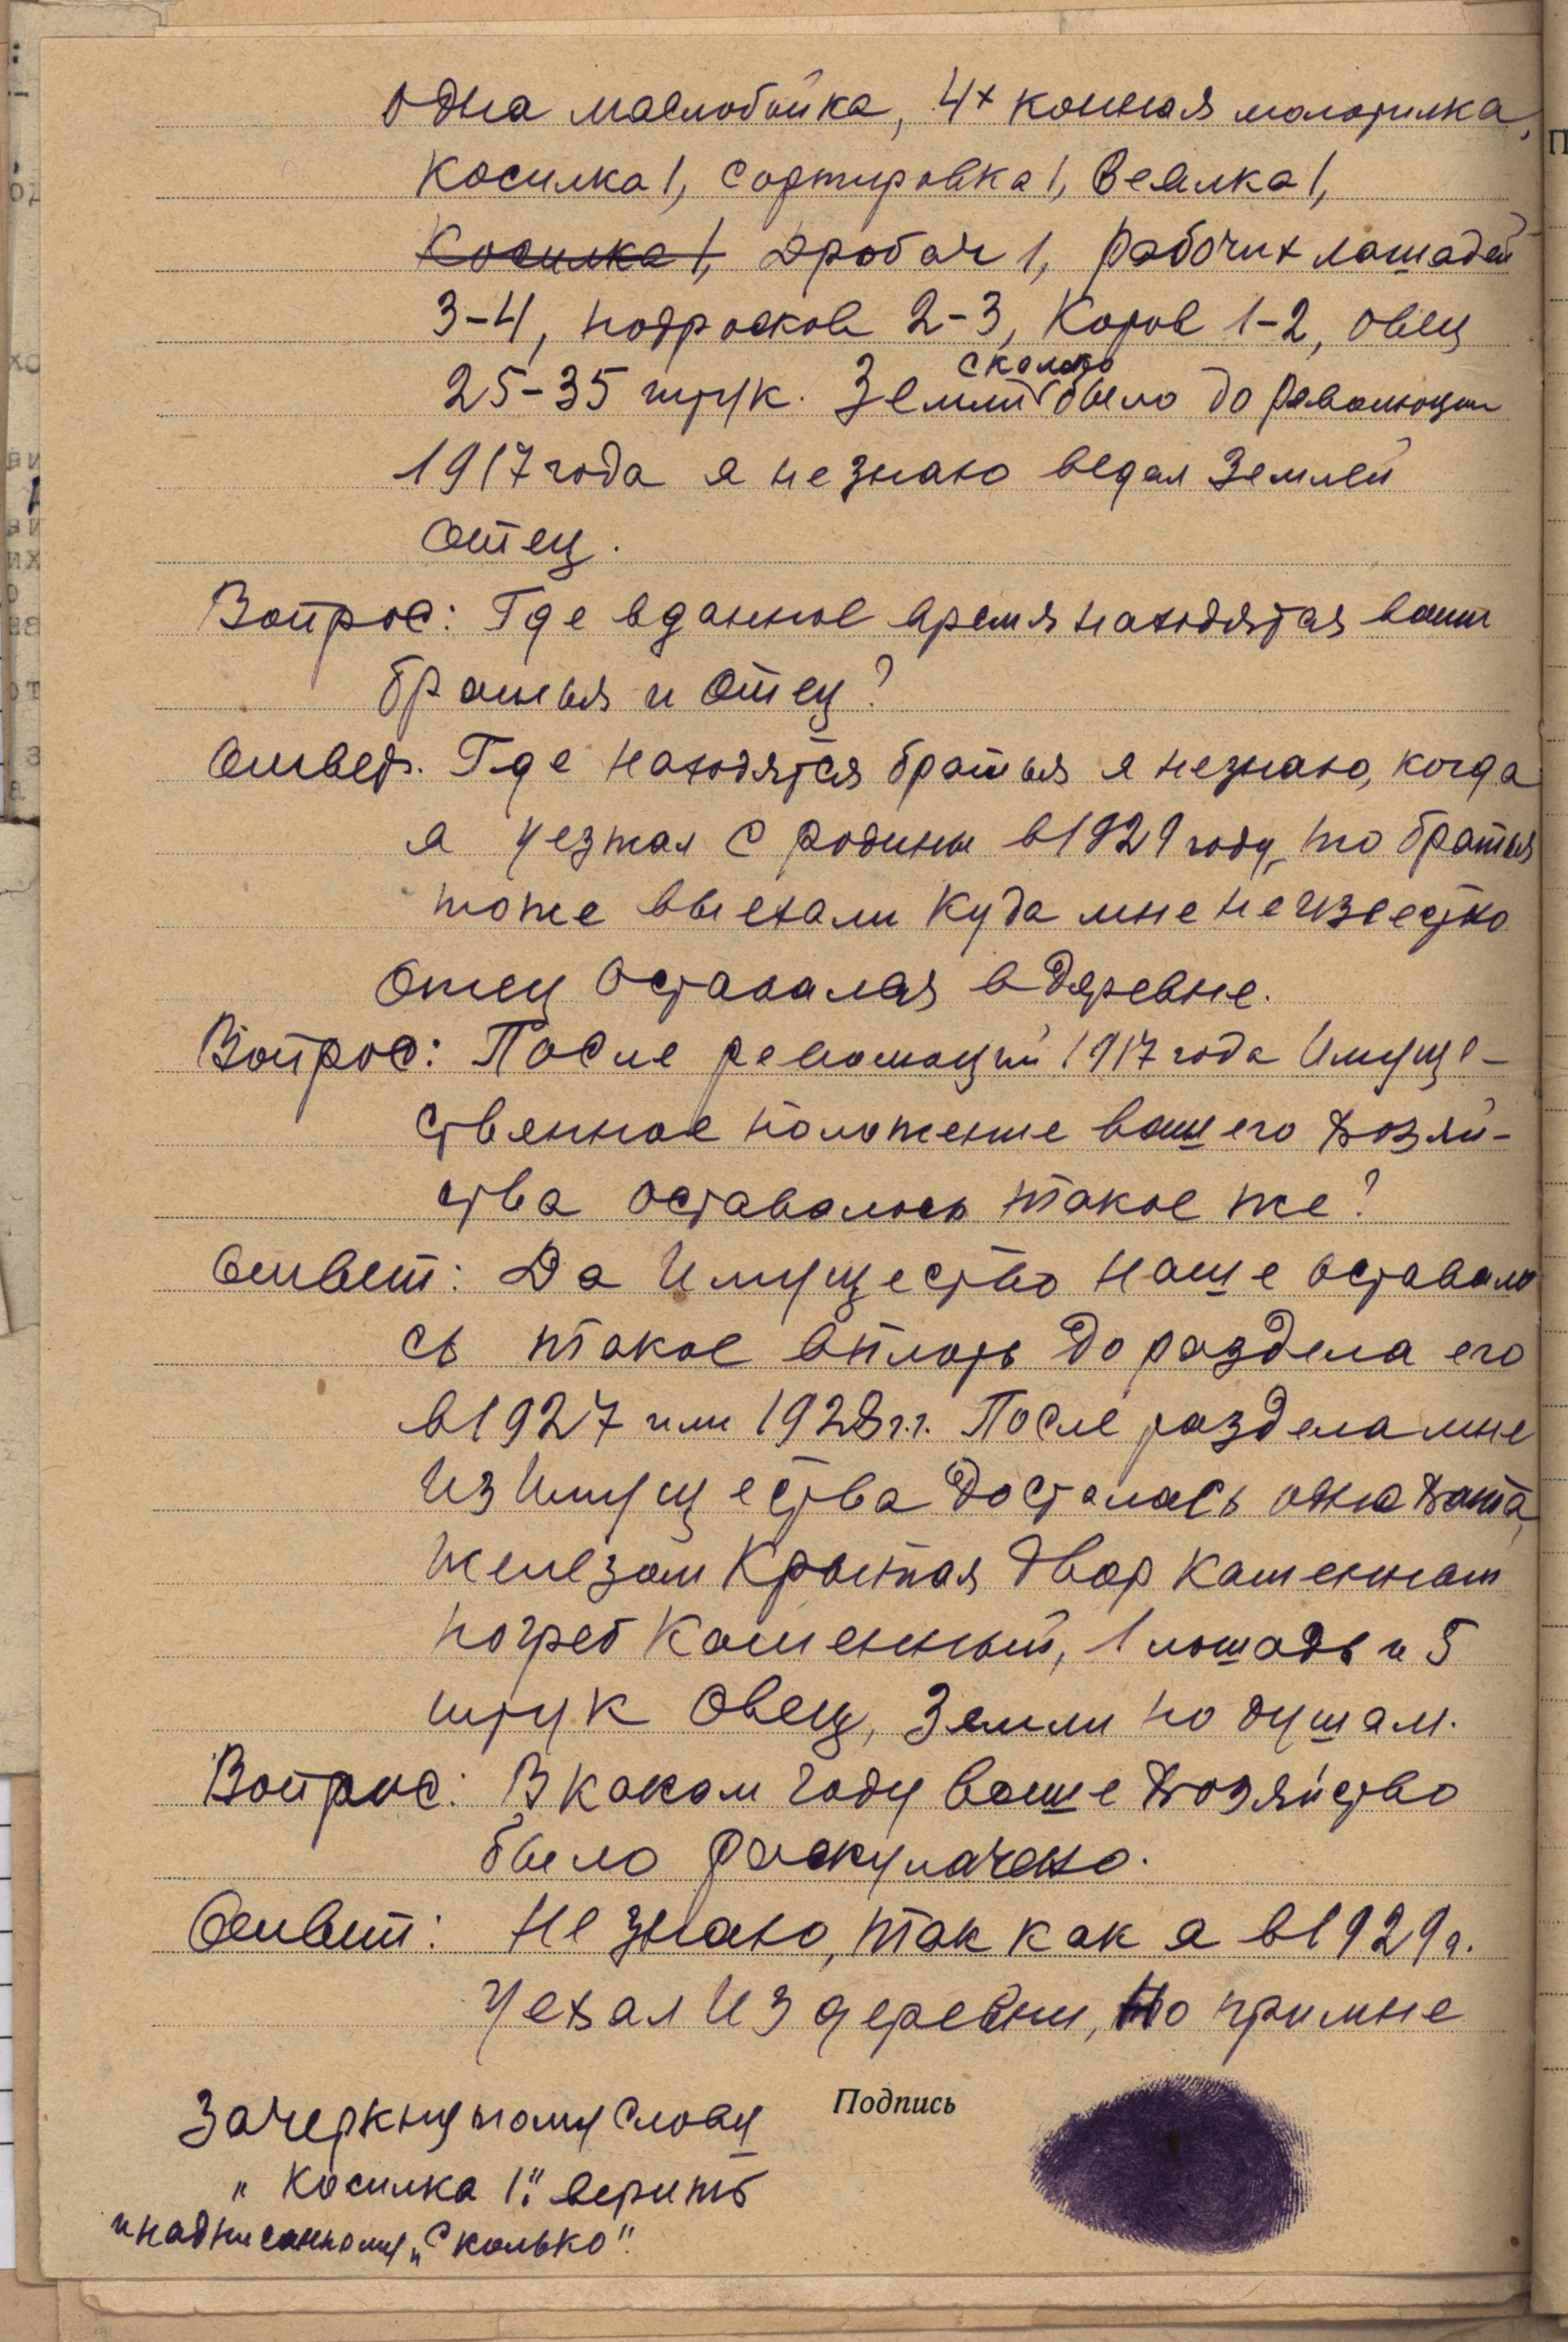 одна маслобойка, 4х конная молотилка,
косилка 1, сортировка 1, веялка 1,
косилка 1, дробач 1, рабочих лошадей
3-4, подросков 2-3, коров 1-2, овец
25-35 штук. Земли сколько было до революции
1917 года я не знаю ведал землей
отец.
Вопрос: Где в данное время находятся ваши
братья и отец?
Ответ. Где находятся братья я незнаю, когда
я уезжал с родины в 1929 году, то братья
тоже выехали куда мне неизвестно
отец оставался в деревне.
Вопрос: После революций 1917 года имуще-
ственное положение вашего хозяй-
ства оставалось такое же?
Ответ: Да имущество наше оставало
сь такое вплоть до раздела его
в 1927 или 1928 г.г. После раздела мне
из имущества досталась одна хата,
железом крытая двор каменный
погреб каменный, 1 лошадь и 5
штук овец, земли по душам.
Вопрос: В каком году ваше хозяйство
было раскулачено.
Ответ: Не знаю, так как я в 1929 г.
уехал из деревни, но при мне
Зачеркнутому слову
Подпись
„косилка 1." верить
и надписанному „сколько".